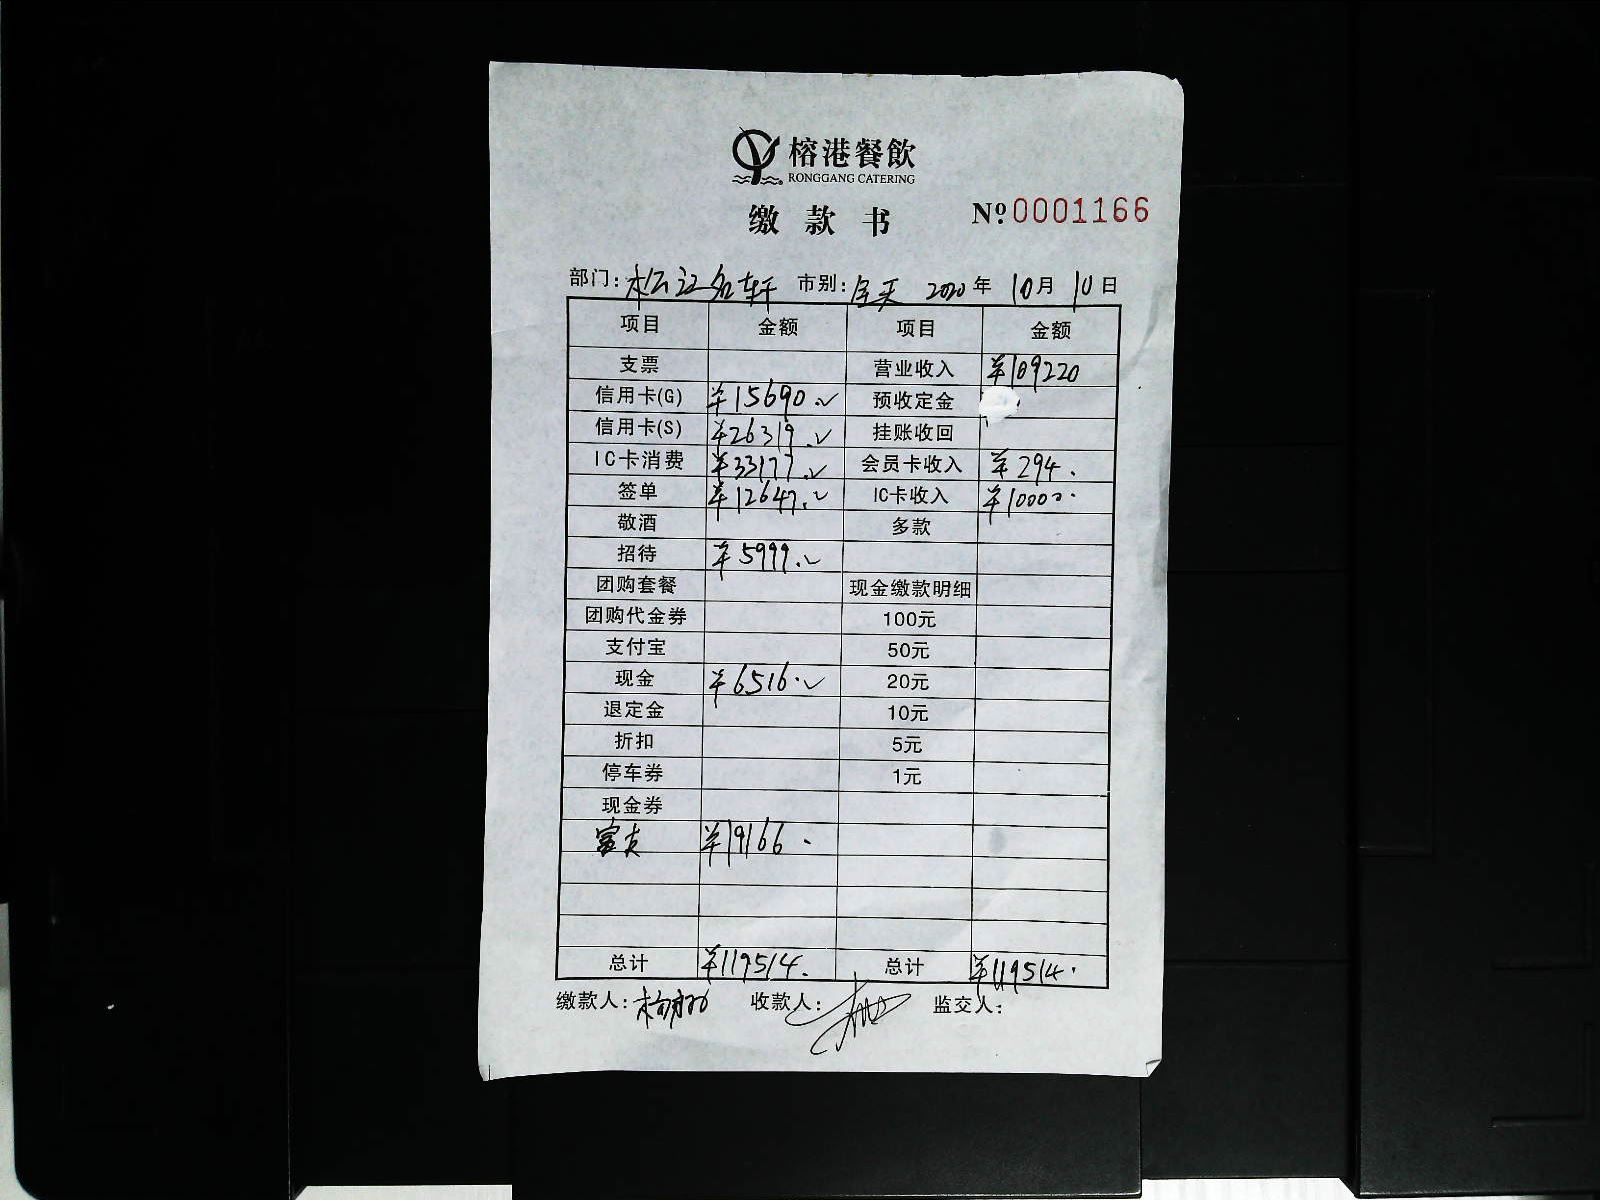 榕港餐飲
RONGGANG CATERING
缴款书 №0001166
部门:松江名轩 市别:全天 2020年10月10日
项目 金额 项目 金额
支票 营业收入 ¥109220
信用卡(G) ¥15690. 预收定金
信用卡(S) ¥26319. 挂账收回
IC卡消费 ¥33177. 会员卡收入 ¥294.
签单 ¥12647. IC卡收入 ¥10000.
敬酒 多款
招待 ¥5999.
团购套餐 现金缴款明细
团购代金券 100元
支付宝 50元
现金 ¥6516. 20元
退定金 10元
折扣 5元
停车券 1元
现金券
富友 ¥19166.
总计 ¥119514. 总计 ¥119514.
缴款人: 收款人: 监交人: